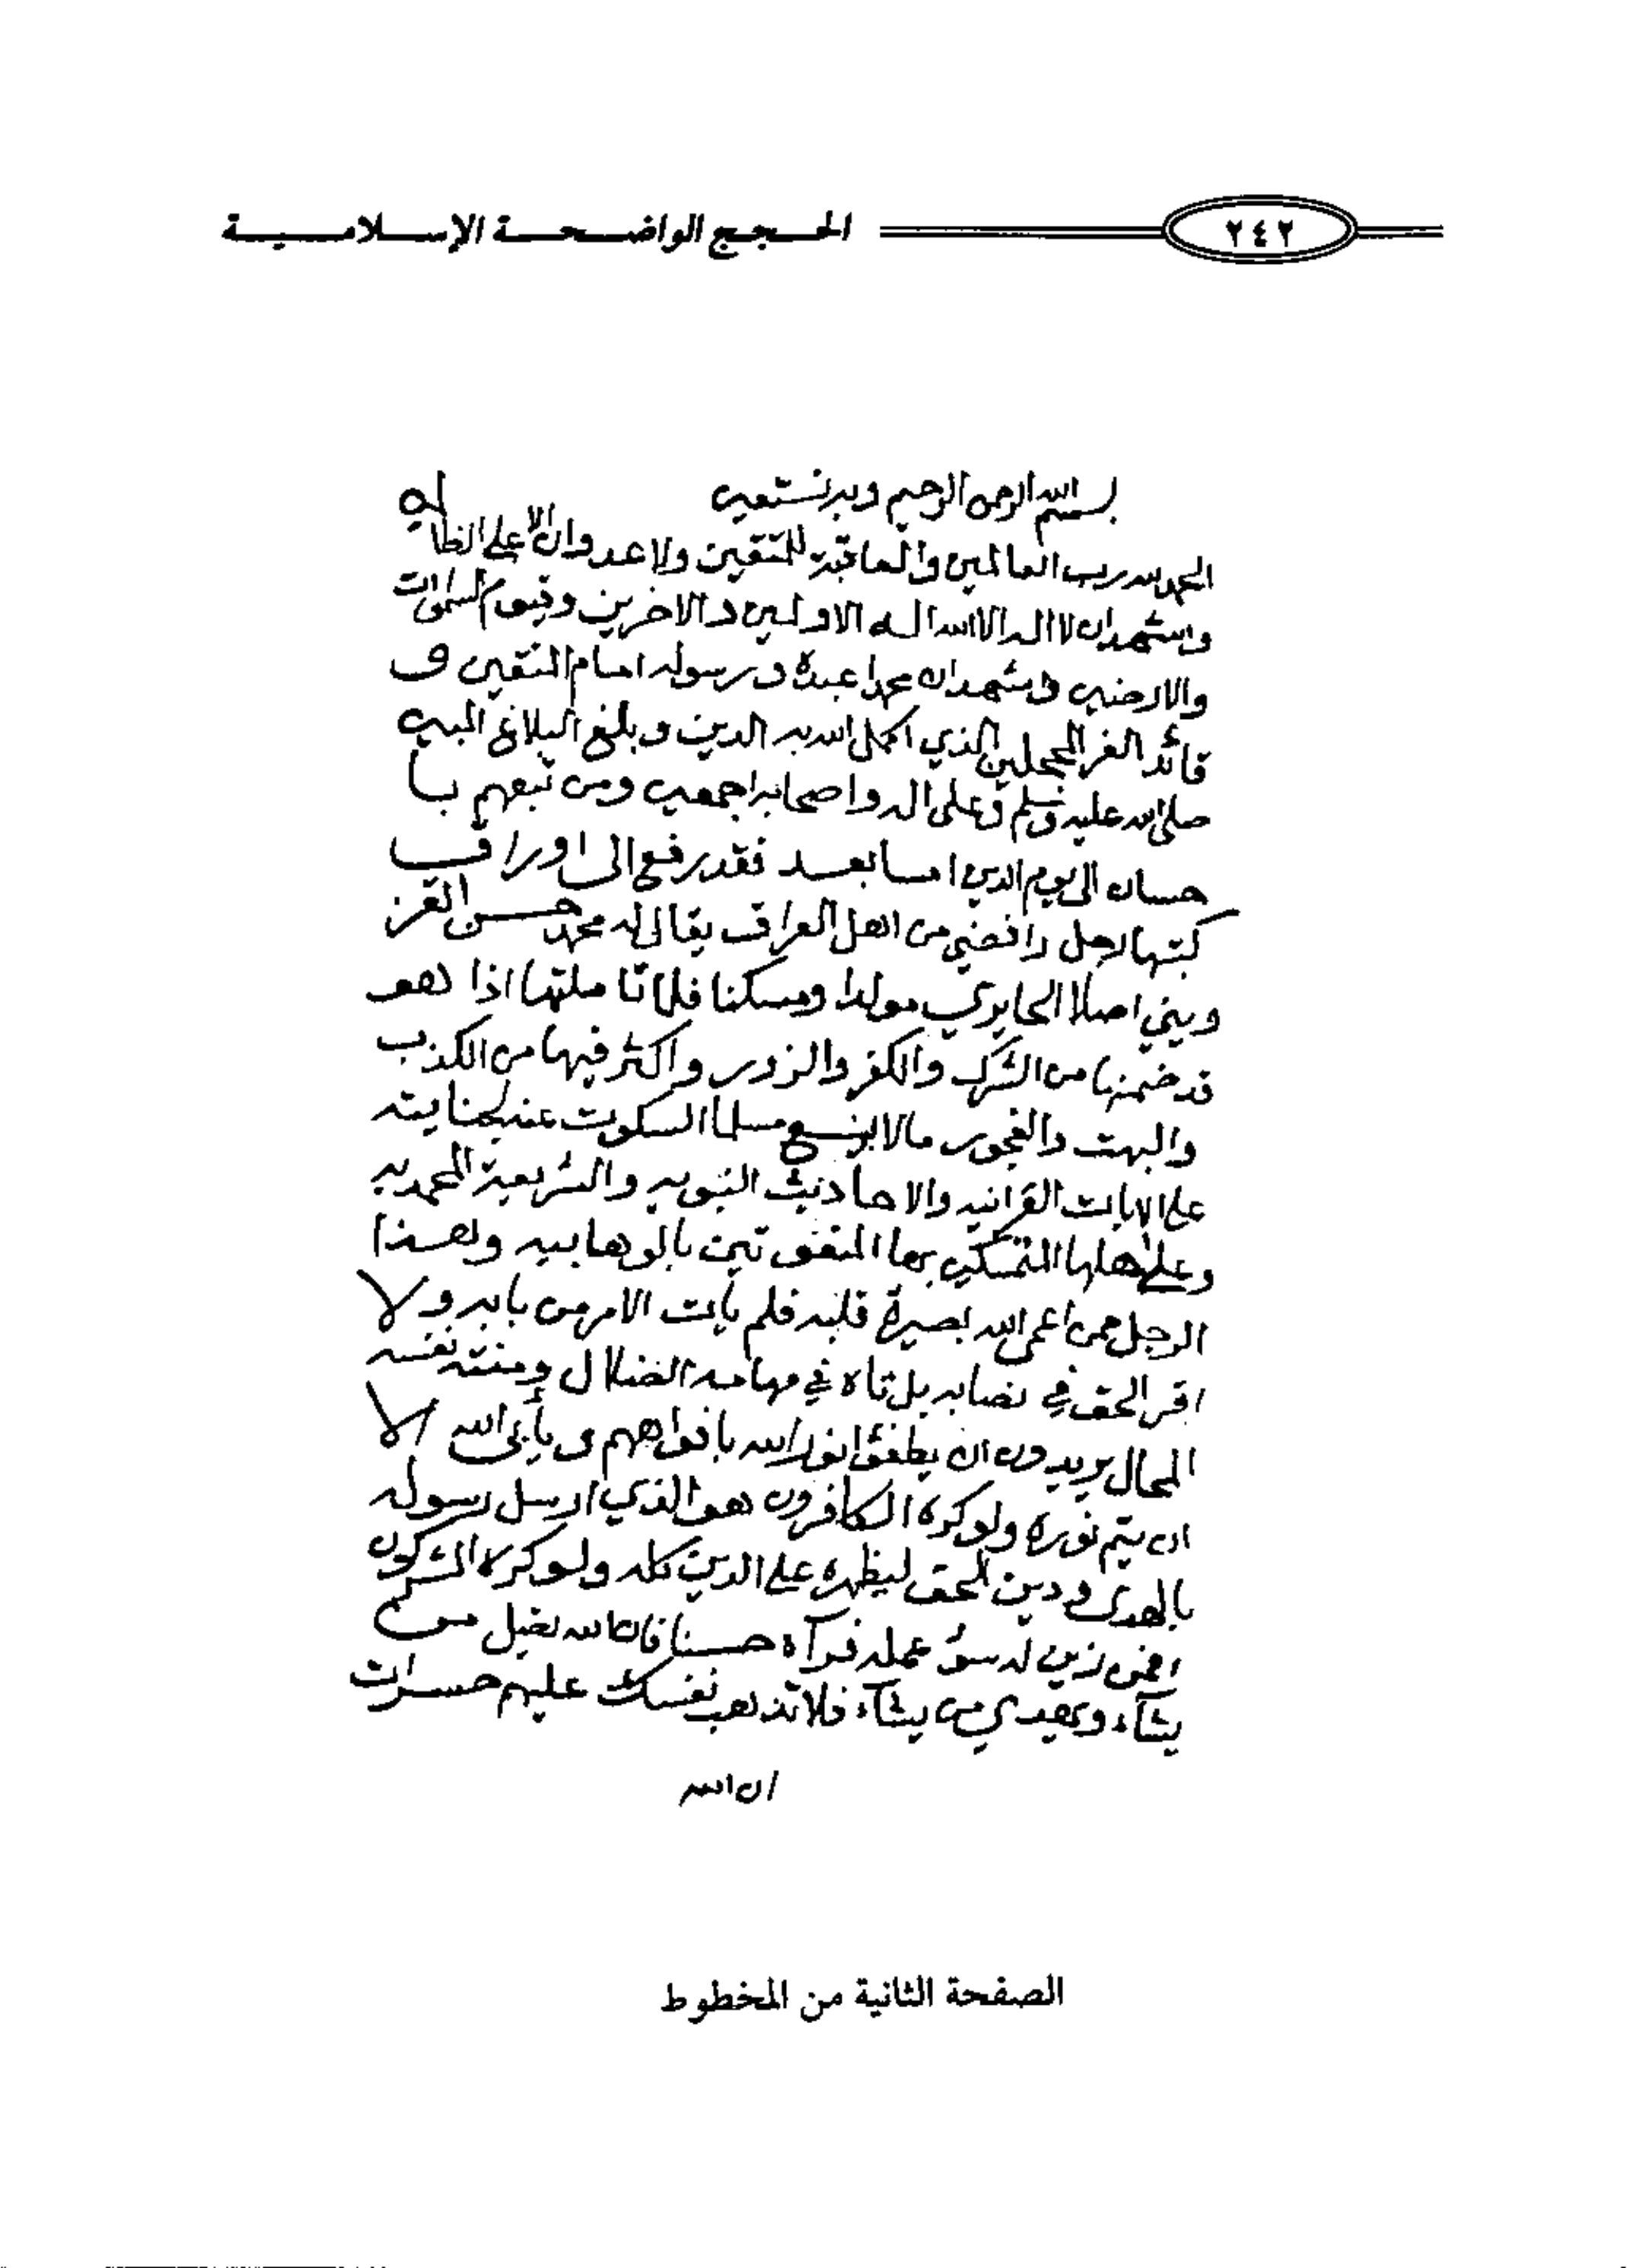 ٢٤٢
الحجج الواضحة الإسلامية
بسم الله الرحمن الرحيم وبه نستعين
الحمد لله رب العالمين والعاقبة للمتقين ولا عدوان الا على الظالمين
واشهد ان لا اله الا الله اله الاولين والاخرين وقيوم السموات
والارضين واشهد ان محمدا عبده ورسوله امام المتقين و
قائد الغر المحجلين الذي اكمل الله به الدين وبلغ البلاغ المبين
صلى الله عليه وسلم وعلى اله واصحابه اجمعين ومن تبعهم با
حسان الى يوم الدين اما بعد فقد رفع الى اوراق
كتبها رجل رافضي من اهل العراق يقال له محمد حسن القز
ويني اصلا الحايري مولدا ومسكنا فلما تاملتها اذا هو
قد ضمنها من الشرك والكفر والزور واكثر فيها من الكذب
والبهت والفجور مالا يسع مسلما السكوت عند جنايته
على الايات القرانيه والاحاديث النبويه والشريعة المحمديه
وعلى اهلها المتمسكين بها المنعوتين بالوهابيه ولهذا
الرجل ممن اعمى الله بصيرة قلبه فلم يأت الامر من بابه ولا
اقر الحق في نصابه بل تاه في مهامه الضلال ومنته نفسه
المحال يريدون ان يطفئوا نور الله بافواههم ويأبى الله الا
ان يتم نوره ولو كره الكافرون هو الذي ارسل رسوله
بالهدى ودين الحق ليظهره على الدين كله ولو كره المشركون
افمن زين له سوء عمله فرآه حسنا فان الله يضل من
يشآء ويهدي من يشآء فلا تذهب نفسك عليهم حسرات
ان الله
الصفحة الثانية من المخطوط